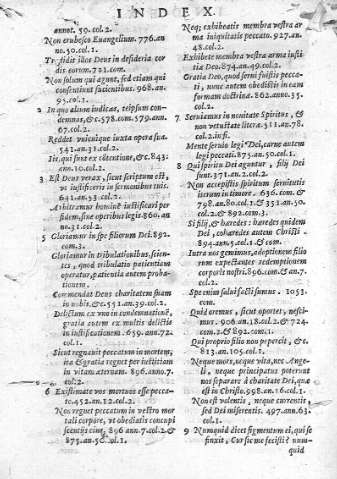 INDEX
annot. 50. col. 2.
Non erubesco Euangelium. 776. an
no. 50. col. 1.
Tradidit illos Deus in desideria cor
dis eorum. 721. com.
Non solum qui agunt, sed etiam qui
consentiunt facientibus. 968. an.
95. col. 1.
2 In quo alium iudicas, teipsum con
demnas, &c. 578. com. 579. ann.
67. col. 2.
Reddet vnicuique iuxta opera sua.
541. an. 31. col. 2.
Iis, qui sunt ex contentione, &c. 843.
ann. 10. col. 2.
3 Est Deus verax, sicut scriptum est,
vt iustificeris in sermonibus tuis.
641. an. 53. col. 2.
Arbitramur hominem iustificari per
fidem, sine operibus legis. 860. an
no. 31. col. 2.
5 Gloriamur in spe filiorum Dei. 592.
com. 3.
Gloriamur in tribulationibus, scien-
tes, quod tribulatio patientiam
operatur, patientia autem proba-
tionem.
Commendat Deus charitatem suam
in nobis, &c. 551. an. 39. col. 2.
Delictum ex vno in condemnationē,
gratia autem ex multis delictis
in iustificationem. 659. ann. 72.
col. 1.
Sicut regnauit peccatum in mortem,
ita & gratia regnet per iustitiam
in vitam æternam. 896. anno. 7.
col. 2.
6 Existimate vos mortuos esse pecca-
to. 452. an. 12. col. 2.
Non regnet peccatum in vestro mor
tali corpore, vt obediatis concupi
scentiis eius. 896. ann. 7. col. 2 &
875. an. 50. col. 1.
Neq; exhibeatis membra vestra ar
ma iniquitatis peccato. 927. an.
48. col. 2.
Exhibete membra vestra arma iusti
tiæ Deo. 874. an. 49. col. 2.
Gratia Deo, quod serui fuistis pecca-
ti, nunc autem obedistis in eam
formam doctrinæ. 862. anno. 35.
col. 2.
7 Seruiamus in nouitate Spiritus, &
non vetustate literæ. 311. an. 78.
col. 2. in fi.
Mente seruio legi Dei, carne autem
legi peccati. 875. an. 50. col. 1.
8 Qui spiritu Dei aguntur, filij Dei
sunt. 371. an. 2. col. 2.
Non accepistis spiritum seruitutis
iterum in timore. 636. com. &
798. an. 80. col. 1. & 351. an. 50.
col. 2. & 892. com. 3.
Si filij, & hæredes: hæredes quidem
Dei, cohæredes autem Christi.
894. ann. 5. col. 1. & com.
Intra nos gemimus, adoptionem filio
rum expectantes redemptionem
corporis nostri. 896. com. & an. 7.
col. 2.
Spe enim salui facti sumus. 1053.
com.
Quid oremus, sicut oportet, nesci-
mus. 906. an. 18. col. 2. & 724.
com. & 892. com. 1.
Qui proprio filio non pepercit, &c.
813. an. 105. col. 1.
Neque mors, neque vita, nec Ange-
li, neque principatus poterunt
nos separare à charitate Dei, quæ
est in Christo. 998. an. 16. col. 1.
Non est volentis, neque currentis,
sed Dei miserentis. 497. ann. 63.
col. 1.
9 Numquid dicet figmentum ei, qui se
finxit, Cur sic me fecisti? num-
quid